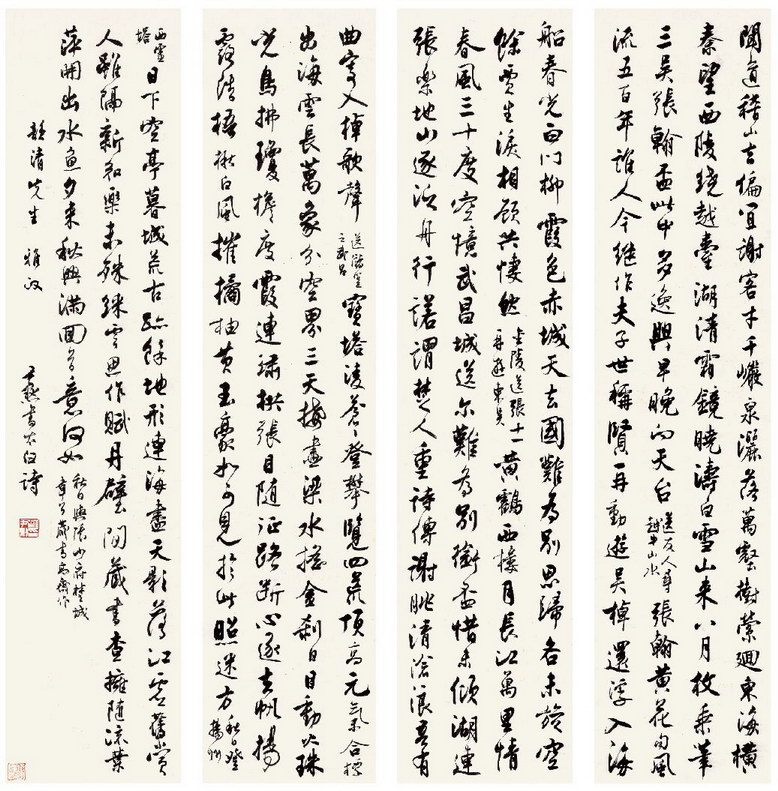 聞道稽山去偏宜謝客才千巖泉灑落萬壑樹縈迴東海橫
秦望西陵繞越臺湖清霜鏡曉濤白雪山來八月枚乘筆
三吳張翰盃此中多逸興早晚向天台 送友人尋越中山水 張翰黃花句風
流五百年誰人今繼作夫子世稱賢再動遊吳棹還浮入海
船春光白門柳霞色赤城天去國難為別思歸各未旋空
餘賈生淚相顧共悽然 金陵送張十一再遊東吳 黃鶴西樓月長江萬里情
春風三十度空憶武昌城送尔難為別銜盃惜未傾湖連
張樂地山逐泛舟行諾謂楚人重詩傳謝朓清滄浪吾有
曲寄入棹歌聲 送儲邕之武昌 寶塔凌蒼蒼登攀覽四荒頂高元氣合標
出海雲長萬象分空界三天接畫梁水搖金剎日動火珠
光鳥拂瓊檐度霞連繡栱張目隨征路斷心逐去帆揚
露浩梧楸白風摧橘柚黃玉毫如可見於此照迷方 秋日登揚州
西靈塔 日下空亭暮城荒古跡餘地形連海盡天影落江虛舊賞
人雖隔新知樂未殊綵雲思作賦丹壁間藏書查擁隨流葉
萍開出水魚夕來秋興滿回首意何如 秋日與張少府楚城韋公藏書高齋作
韶清先生 雅政
尹默書太白詩